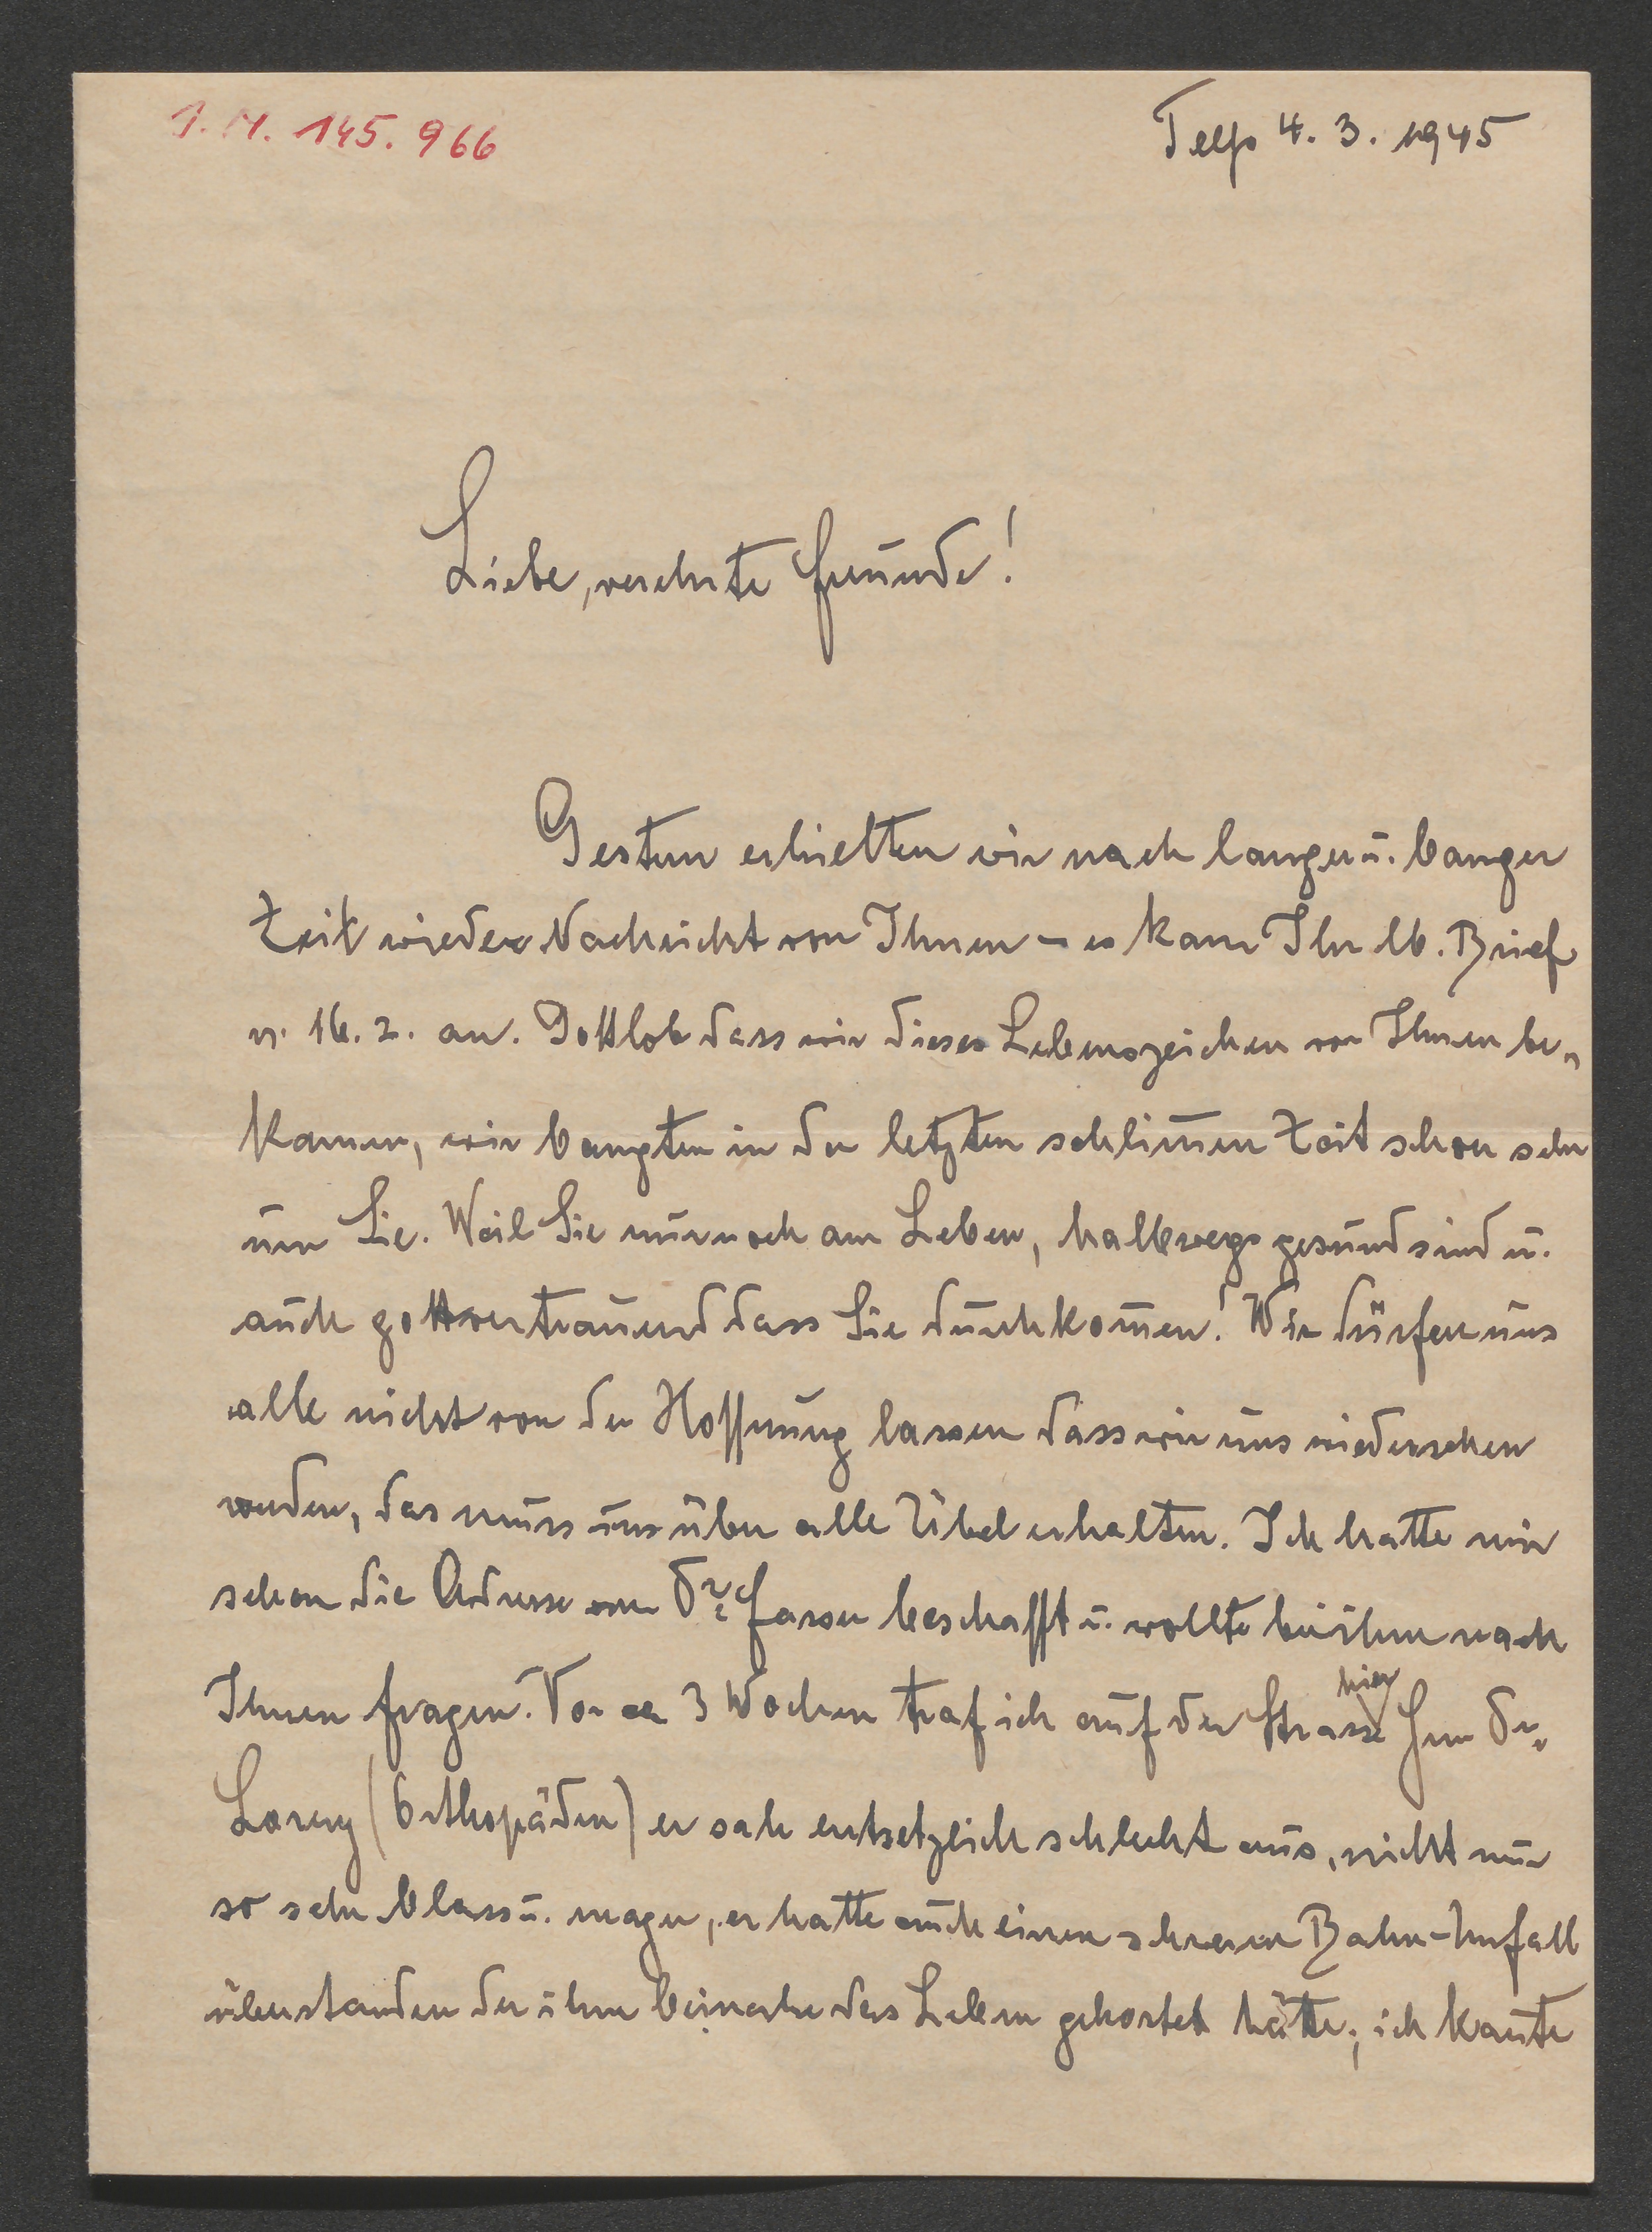 J. N. 145.966
Telfs 4. 3. 1945
Liebe, verehrte Freunde!
Gestern erhielten wir nach langer u. banger
Zeit wieder Nachricht von Ihnen – es kam Ihr lb. Brief
v. 16. 2. an. Gottlob dass wir dieses Lebenszeichen von Ihnen be-
kamen, wir bangten in der letzten schlim̄en Zeit schon sehr
um Sie. Weil Sie nur noch am Leben, halbwegs gesund sind u.
auch gottvertrauend dass Sie durchkom̄en! Wir dürfen uns
alle nicht von der Hoffnung lassen dass wir uns wiedersehen
werden, das muss uns über alle Übel erhalten. Ich hatte mir
schon die Adresse von Dr. beschafft u. wollte bei ihm nach
Ihnen fragen. Vor ca 3 Wochen traf ich auf der Strasse hier Herrn Dr.
Lorenz (Orthopäden) er sah entsetzlich schlecht aus, nicht nur
so sehr blass u. mager, er hatte auch einen schweren Bahn-Unfall
überstanden der ihm beinahe das Leben gekostet hätte; ich kan̄te